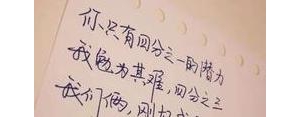 你只有四分之一的潜力
我勉为其难,四分之三
我们俩,刚好